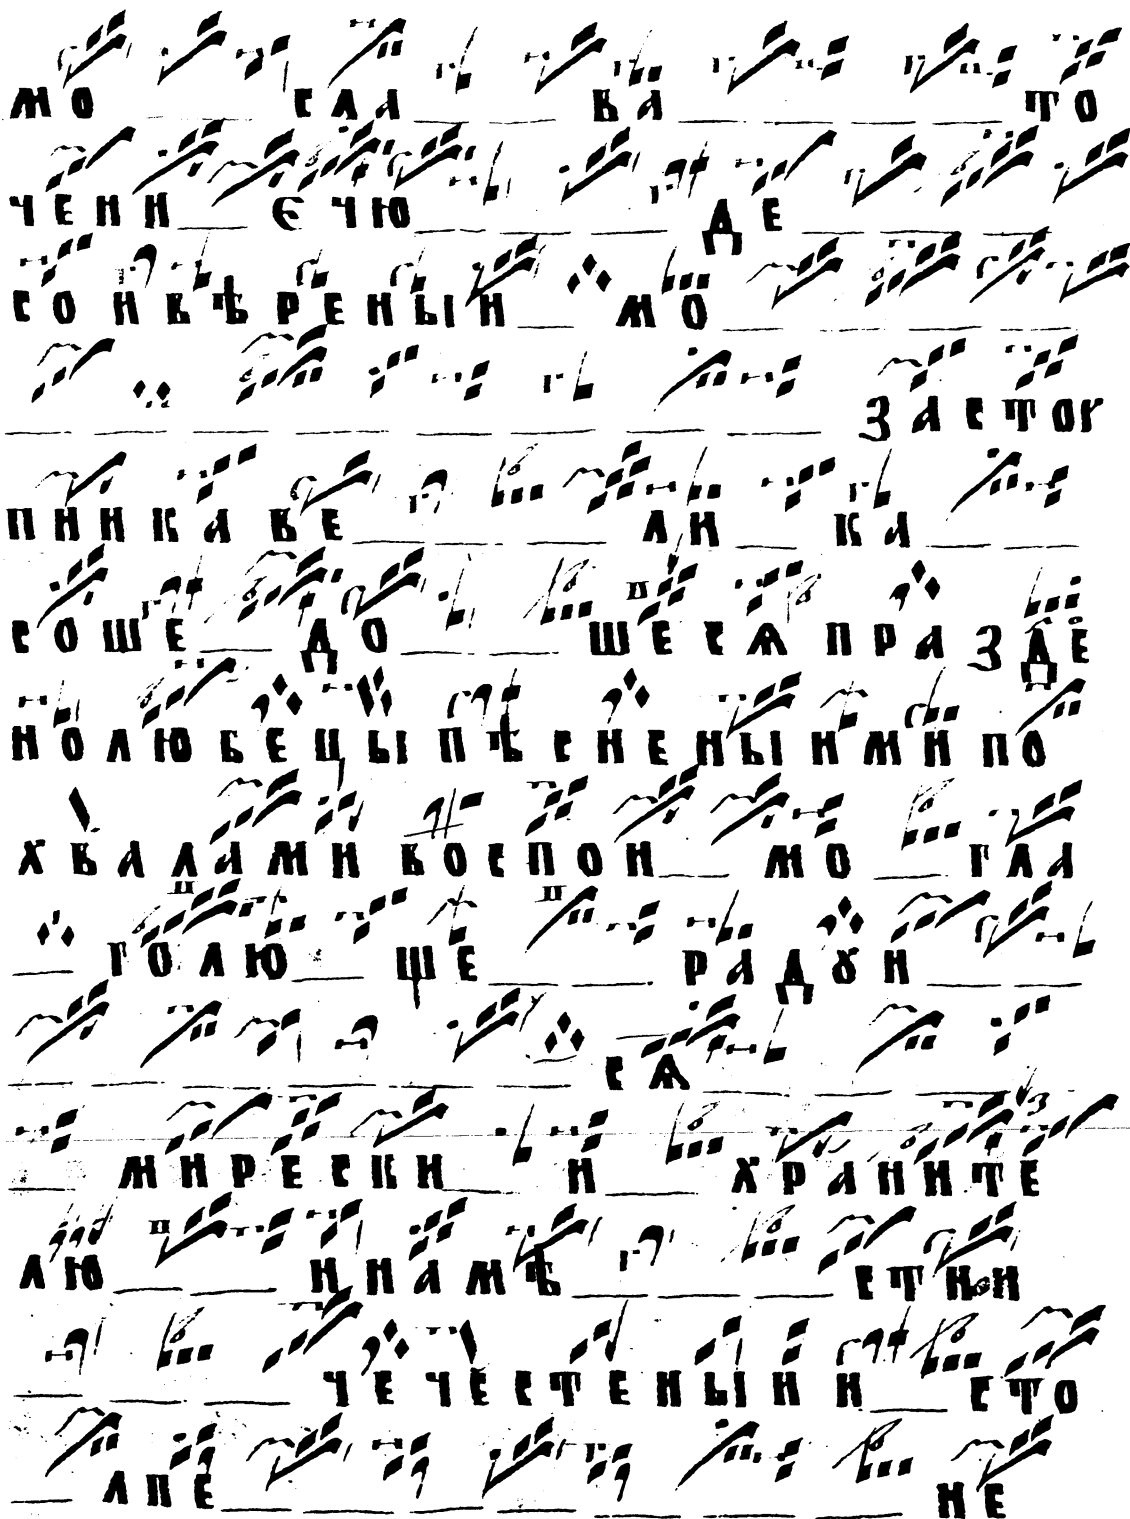 МО СЛА ВА ТО
ЧЕНИ ЄЧЮ ДЕ
СОИВѢРЕНЫИ МО
ЗАСТОУ
ПНИКА ВЕ ЛИ КА
СОШЕ ДО ШЕСѦ ПРАЗДЕ
НОЛЮБЕЦЫ ПѢСНЕНЫИМИ ПО
ХВАЛАМИ ВОСПОИ МО ГЛА
ГОЛЮ ЩЕ РАДꙊИ
СѦ
МИРЕСКИ И ХРАНИТЕ
ЛЮ ИНАМѢ СТИИ
ЧЕЧЕСТЕНЫИ И СТО
ЛПЕ НЕ